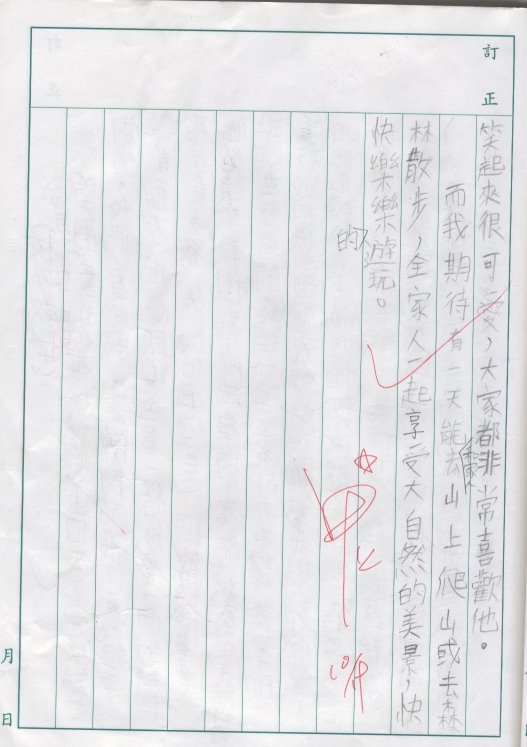 訂正
笑起來很可愛，大家都非常喜歡他。
而我期待有一天能和家人去山上爬山或去森
林散步，全家人一起享受大自然的美景，快
快樂樂的遊玩。
甲上
10/8
月 日